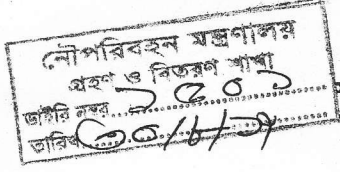 নৌপরিবহন মন্ত্রণালয়
গ্রহণ ও বিতরণ শাখা
ডাইরি নম্বর.......১৫০১
তারিখ